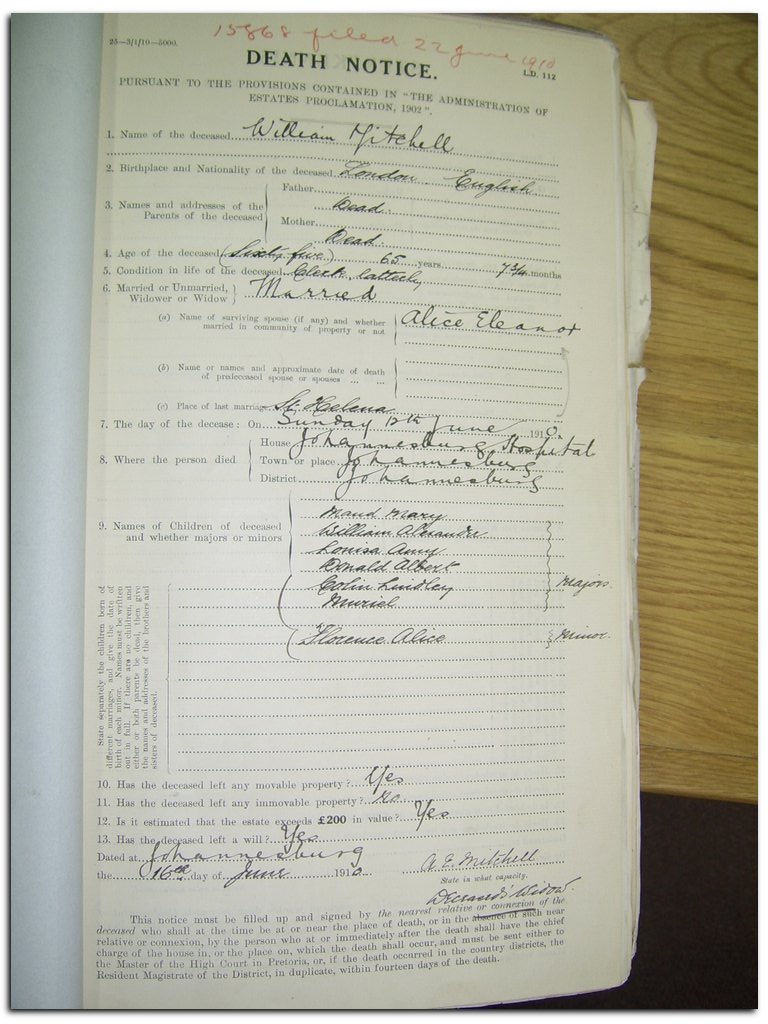 15868 filed 22 June 1910
25—3/1/10—5000.
DEATH NOTICE.
L.D. 112
PURSUANT TO THE PROVISIONS CONTAINED IN "THE ADMINISTRATION OF
ESTATES PROCLAMATION, 1902".
1. Name of the deceased William Mitchell
2. Birthplace and Nationality of the deceased London. English
3. Names and addresses of the Parents of the deceased
Father Dead.
Mother Dead.
4. Age of the deceased (Sixty five) 65 years 7 3/4 months
5. Condition in life of the deceased Clerk latterly
6. Married or Unmarried, Widower or Widow } Married
(a) Name of surviving spouse (if any) and whether married in community of property or not
Alice Eleanor
(b) Name or names and approximate date of death of predeceased spouse or spouses ... ...
(c) Place of last marriage St. Helena
7. The day of the decease: On Sunday 12th June 1910.
8. Where the person died
House Johannesburg Hospital
Town or place Johannesburg
District Johannesburg
9. Names of Children of deceased and whether majors or minors
Maud Mary
William Alexander
Louisa Amy
Donald Albert
Colin Lindley
Muriel
Majors.
Florence Alice
Minor.
State separately the children born of
different marriages, and give the date of
birth of each minor. Names must be written
out in full. If there are no children, and
either or both parents be dead, then give
the names and addresses of the brothers and
sisters of deceased.
10. Has the deceased left any movable property? Yes
11. Has the deceased left any immovable property? No
12. Is it estimated that the estate exceeds £200 in value? Yes
13. Has the deceased left a will? Yes
Dated at Johannesburg
the 16th day of June 1910
A E Mitchell
State in what capacity.
Deceased's Widow.
This notice must be filled up and signed by the nearest relative or connexion of the
deceased who shall at the time be at or near the place of death, or in the absence of such near
relative or connexion, by the person who at or immediately after the death shall have the chief
charge of the house in, or the place on, which the death shall occur, and must be sent either to
the Master of the High Court in Pretoria, or, if the death occurred in the country districts, the
Resident Magistrate of the District, in duplicate, within fourteen days of the death.